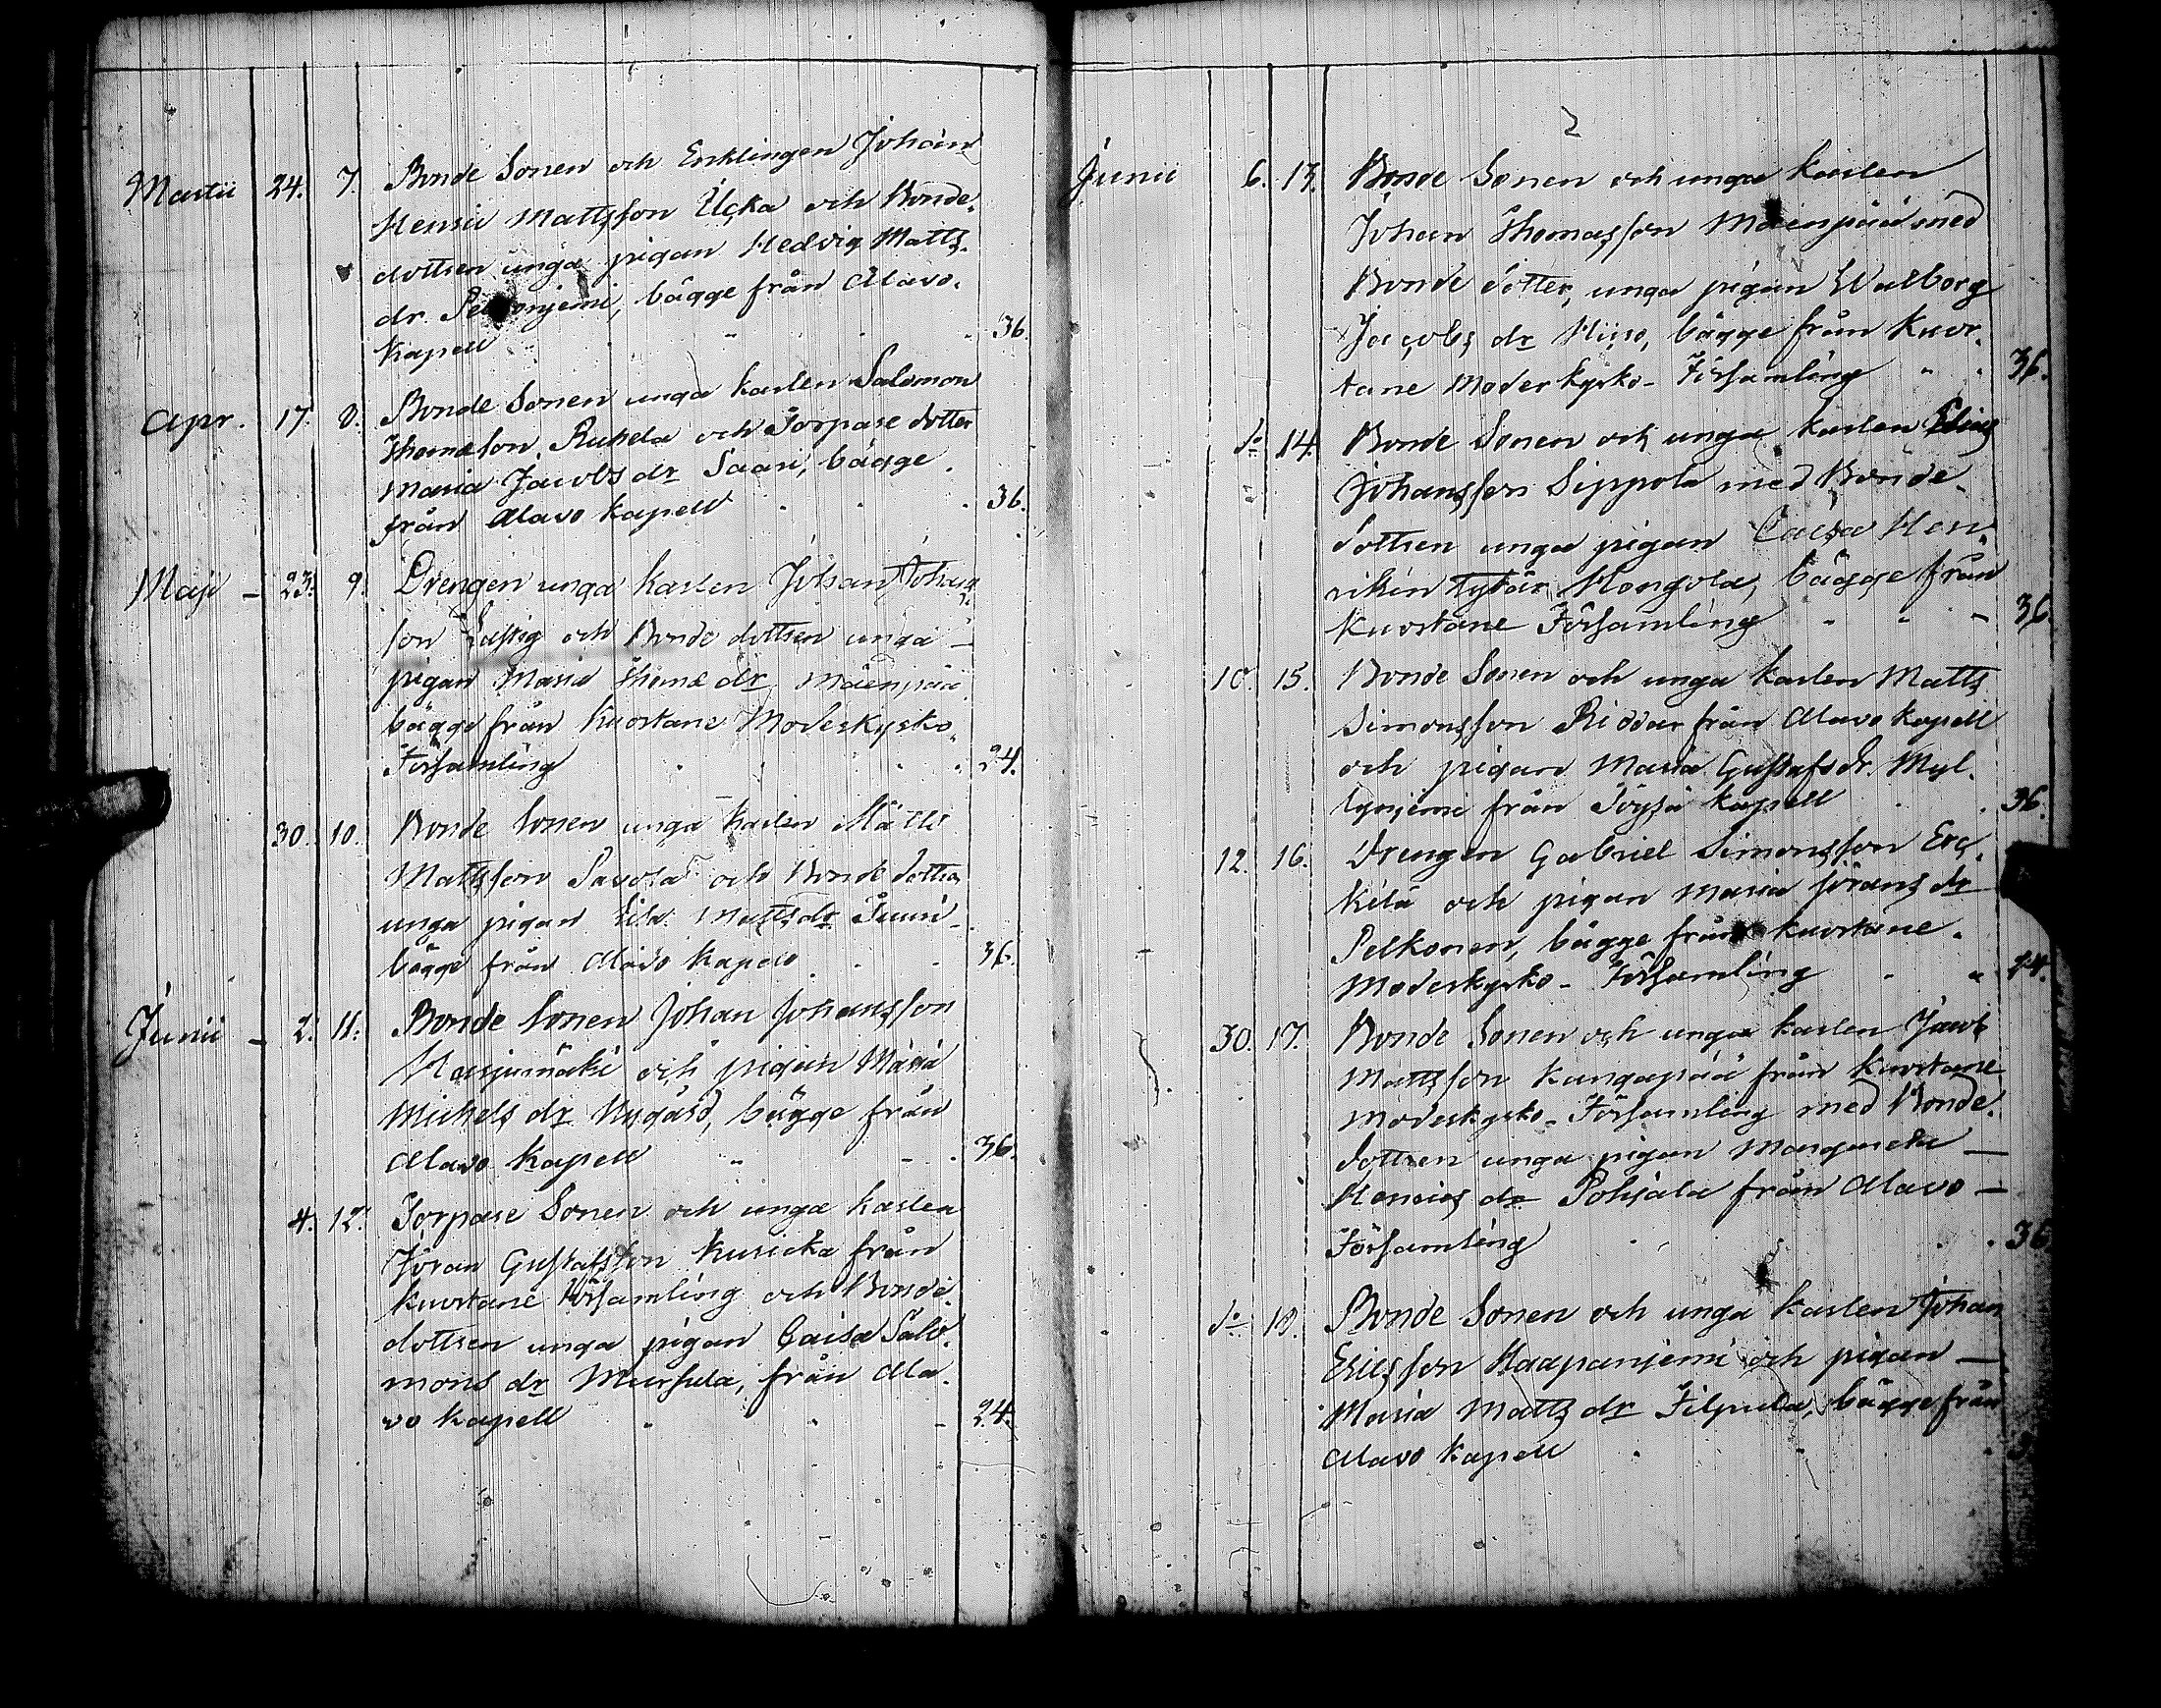 Martii 24. 7. Bonde Sonen och Enklingen Johan
Henric Mattsson Ucka och Bonde-
dottren unga pigan Hedvig Matts
dr. Peltonjemi, bägge från Alavo
Kapell 36.
Apr. 17. 8. Bonde Sonen unga karlen Salomon
Thomæson Ruhela och Torpare dotter
Maria Jacobs dr Saari, bägge
från Alavo Kapell 36.
Maji 23. 9. Drengen unga karlen Johan Johans
son Lustig och Bonde dottren unga
pigan Maria Thomæ dr Mäenpää
bägge från Kuortane Moderkyrko-
Församling 24.
30. 10. Bonde Sonen unga karlen Matts
Mattsson Savola och Bonde dottren
unga pigan Lisa Matts dr Tuuri
bägge från Alavo Kapell 36.
Junii 2. 11. Bonde Sonen Johan Johansson
Harjumäki och pigan Maria
Michels dr Nygård, bägge från
Alavo Kapell 36.
4. 12. Torpare Sonen och unga karlen
Jöran Gustafsson Kusicka från
Kuortane Församling och Bonde-
dottren unga pigan Caisa Salo-
mons dr Mursula, från Ala-
vo Kapell 24.
2
Junii 6. 13. Bonde Sonen och unga karlen
Johan Thomasson Mäenpää med
Bonde Dotter, unga pigan Walborg
Jacobs dr Hiiro, bägge från Kuor-
tane Moderkyrko-Församling 36.
do 14. Bonde Sonen och unga karlen Elias
Johansson Sippola med Bonde-
dottren unga pigan Caisa Hen-
rikin tytär Hongola, bägge från
Kuortane Församling 36
10. 15. Bonde Sonen och unga karlen Matts
Simonsson Riddar från Alavo Kapell
och pigan Maria Gustafs dr. Myl-
lyniemi från Töysä Kapell 36.
12. 16. Drengen Gabriel Simonsson Erc-
kilä och pigan Maria Jörans dr
Pelkonen, bägge från Kuortane
Moderkyrko-Församling 24.
30. 17. Bonde Sonen och unga karlen Jacob
Mattsson Kangapää från Kuortane
Moderkyrko-Församling med Bonde-
dottren unga pigan Margareta
Henrics dr Pohjala från Alavo
Församling 36
do 18. Bonde Sonen och unga karlen Johan
Ericsson Haapaniemi och pigan
Maria Matts dr Filpula, bägge från
Alavo Kapell